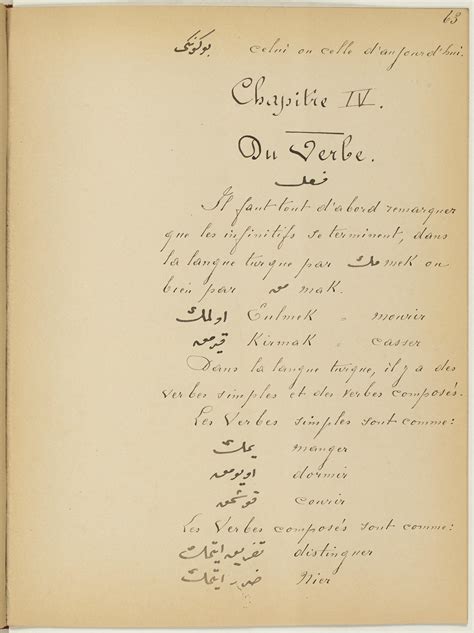 63
بوكونكى celui ou celle d'aujourd'hui.
Chapitre IV.
Du Verbe.
فعل
Il faut tout d'abord remarquer
que les infinitifs se terminent, dans
la langue turque par مك mek ou
bien par مق mak.
اولمك Eulmek = mourir
قيرمق Kirmak = casser
Dans la langue turque, il y a des
verbes simples et des verbes composés.
Les Verbes simples sont comme:
يمك manger
اويومق dormir
قوشمق courir
Les Verbes composés sont comme:
تفريق ايتمك distinguer
ايتمك